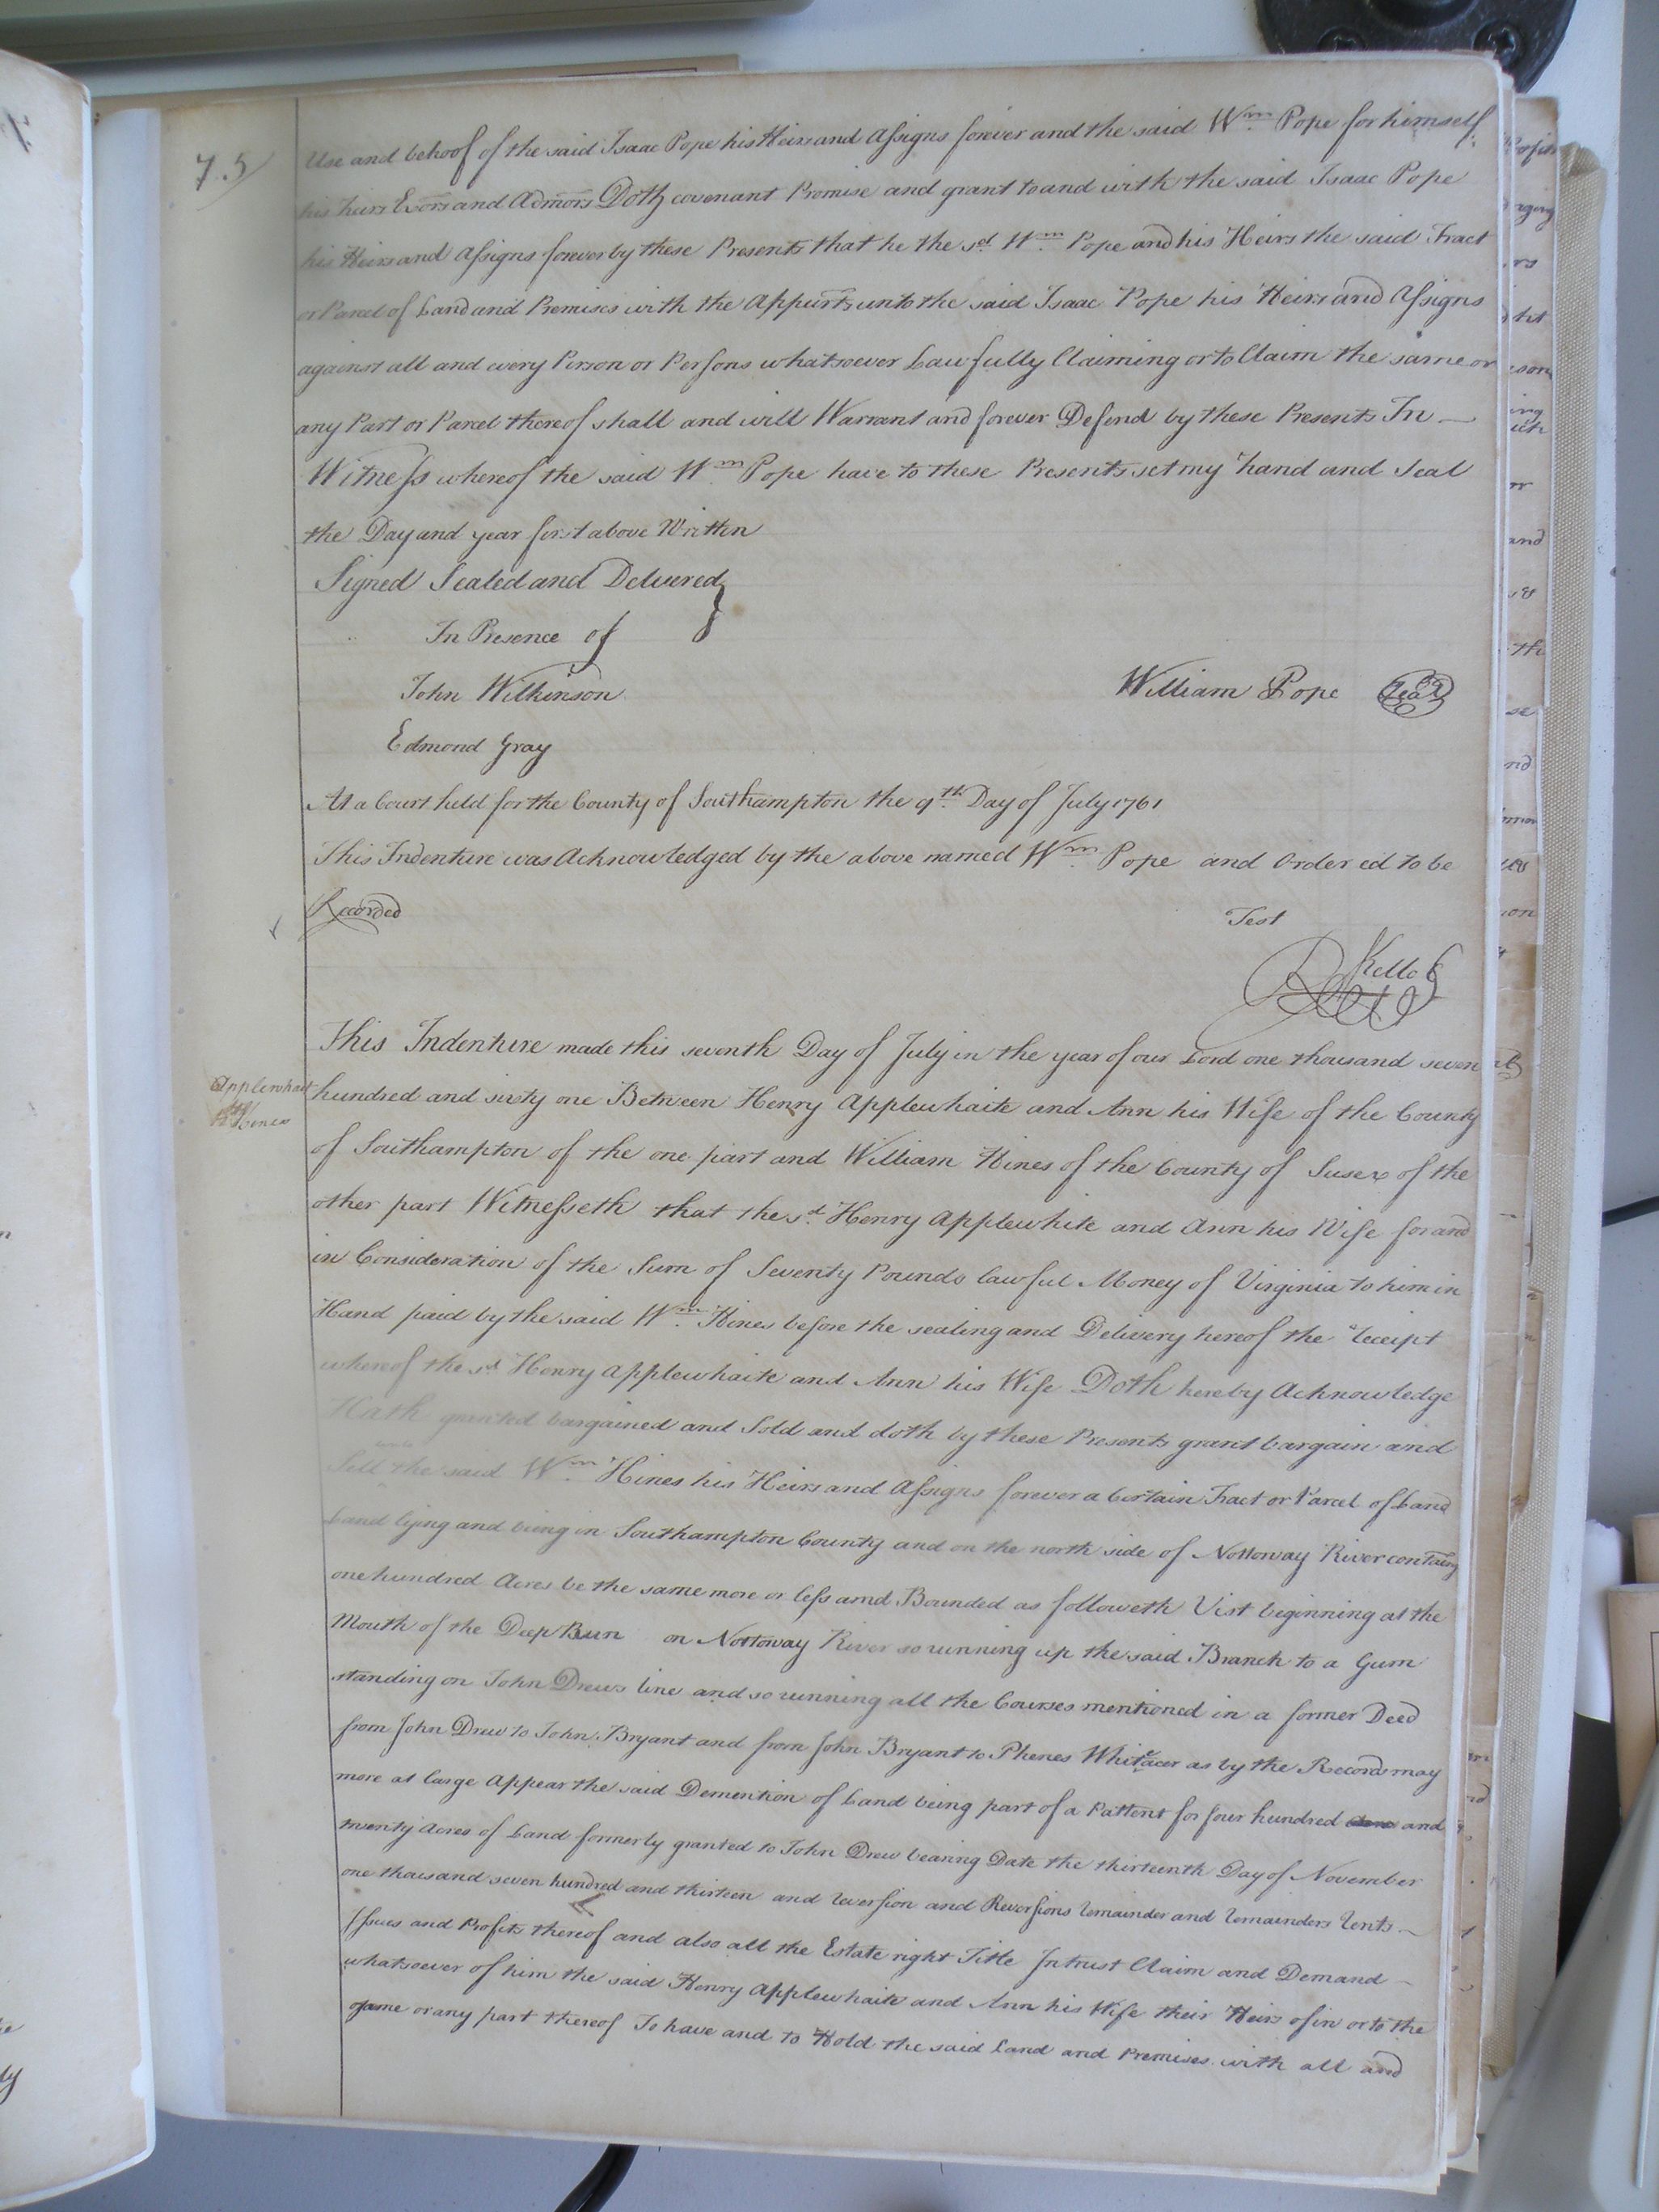 75
Use and behoof of the said Isaac Pope his Heirs and Assigns forever and the said Wm Pope for himself
his heirs Exors and Admors Doth covenant Promise and grant to and with the said Isaac Pope
his Heirs and Assigns forever by these Presents that he the sd Wm Pope and his Heirs the said Tract
or Parcel of Land and Premises with the Appurts unto the said Isaac Pope his Heirs and Assigns
against all and every Person or Persons whatsoever Lawfully Claiming or to Claim the same or
any Part or Parcel thereof shall and will Warrant and forever Defend by these Presents In
Witness whereof the said Wm Pope have to these Presents set my hand and Seal
the Day and year first above Written
Signed Sealed and Delivered
In Presence of
John Wilkinson
William Pope Seal
Edmond Gray
At a Court held for the County of Southampton the 9th Day of July 1761
This Indenture was Acknowledged by the above named Wm Pope and Ordered to be
Recorded
Test
R Kello C
This Indenture made this seventh Day of July in the year of our Lord one thousand seven
Applewhait
to Hines
hundred and sixty one Between Henry Applewhaite and Ann his Wife of the County
of Southampton of the one part and William Hines of the County of Susex of the
other part Witnesseth that the sd Henry Applewhite and Ann his Wife for and
in Consideration of the Sum of Seventy Pounds lawful Money of Virginia to him in
Hand paid by the said Wm Hines before the sealing and Delivery hereof the receipt
whereof the sd Henry Applewhaite and Ann his Wife Doth hereby Acknowledge
Hath granted bargained and Sold and doth by these Presents grant bargain and
Sell unto the said Wm Hines his Heirs and Assigns forever a Certain Tract or Parcel of Land
Land lying and being in Southampton County and on the north side of Nottoway River containg
one hundred Acres be the same more or less amd Bounded as followeth Vist beginning at the
Mouth of the Deep Bun on Nottoway River so running up the said Branch to a Gum
standing on John Drews line and so running all the Courses mentioned in a former Deed
from John Drew to John Bryant and from John Bryant to Phenes Whitacer as by the Records may
more at large Appear the said Demention of Land being part of a Pattent for four hundred and
twenty Acres of Land formerly granted to John Drew bearing Date the thirteenth Day of November
one thousand seven hundred and thirteen and reversion and Reversions remainder and remainders rents
Issues and Profits thereof and also all the Estate right Title Intrust Claim and Demand
whatsoever of him the said Henry Applewhaite and Ann his Wife their Heirs of in or to the
same or any part thereof To have and to Hold the said Land and Premises with all and